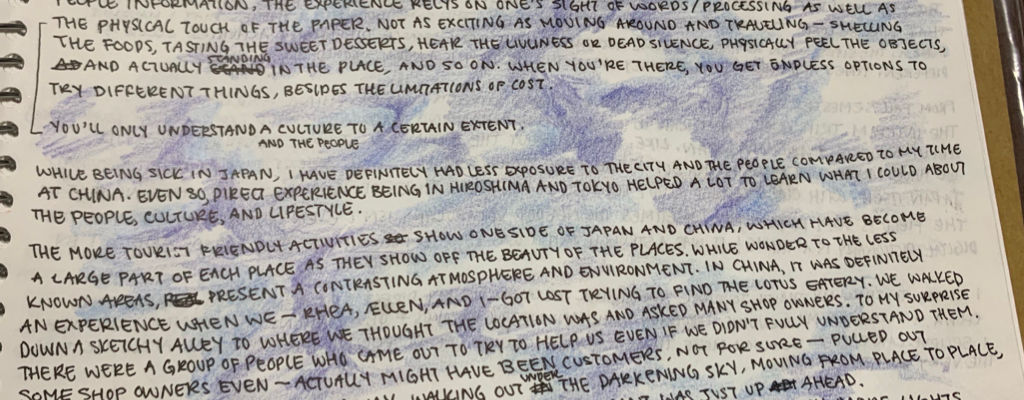 PEOPLE INFORMATION, THE EXPERIENCE RELIES ON ONE'S SIGHT OF WORDS/PROCESSING AS WELL AS
THE PHYSICAL TOUCH OF THE PAPER. NOT AS EXCITING AS MOVING AROUND AND TRAVELING – SMELLING
THE FOODS, TASTING THE SWEET DESSERTS, HEAR THE LIVLINESS OR DEAD SILENCE, PHYSICALLY FEEL THE OBJECTS,
AND ACTUALLY STANDING IN THE PLACE, AND SO ON. WHEN YOU'RE THERE, YOU GET ENDLESS OPTIONS TO
TRY DIFFERENT THINGS, BESIDES THE LIMITATIONS OF COST.
YOU'LL ONLY UNDERSTAND A CULTURE TO A CERTAIN EXTENT.
AND THE PEOPLE
WHILE BEING SICK IN JAPAN, I HAVE DEFINITELY HAD LESS EXPOSURE TO THE CITY AND THE PEOPLE COMPARED TO MY TIME
AT CHINA. EVEN SO, DIRECT EXPERIENCE BEING IN HIROSHIMA AND TOKYO HELPED A LOT TO LEARN WHAT I COULD ABOUT
THE PEOPLE, CULTURE, AND LIFESTYLE.
THE MORE TOURIST FRIENDLY ACTIVITIES SHOW ONE SIDE OF JAPAN AND CHINA, WHICH HAVE BECOME
A LARGE PART OF EACH PLACE AS THEY SHOW OFF THE BEAUTY OF THE PLACES. WHILE WONDER TO THE LESS
KNOWN AREAS, PRESENT A CONTRASTING ATMOSPHERE AND ENVIRONMENT. IN CHINA, IT WAS DEFINITELY
AN EXPERIENCE WHEN WE – RHEA, ÆLLEN, AND I – GOT LOST TRYING TO FIND THE LOTUS EATERY. WE WALKED
DOWN A SKETCHY ALLEY TO WHERE WE THOUGHT THE LOCATION WAS AND ASKED MANY SHOP OWNERS. TO MY SURPRISE
THERE WERE A GROUP OF PEOPLE WHO CAME OUT TO TRY TO HELP US EVEN IF WE DIDN'T FULLY UNDERSTAND THEM.
SOME SHOP OWNERS EVEN – ACTUALLY MIGHT HAVE BEEN CUSTOMERS, NOT FOR SURE – PULLED OUT
WALKING OUT UNDER THE DARKENING SKY, MOVING FROM PLACE TO PLACE,
WAS JUST UP AHEAD.
LIGHTS